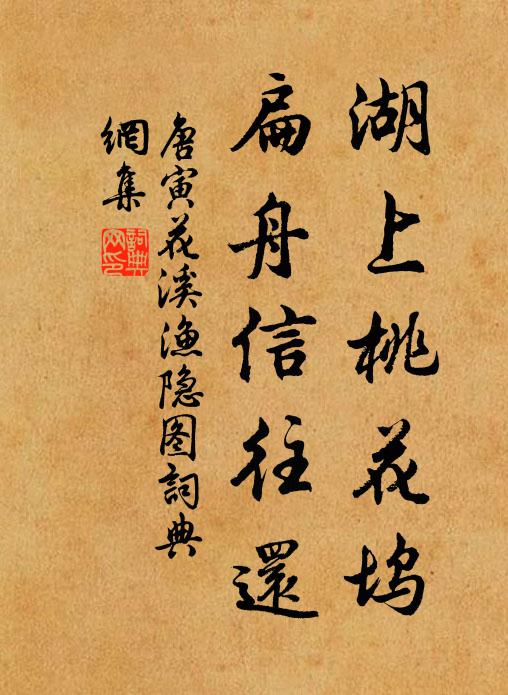 湖上桃花坞
扁舟信往還
唐寅花溪漁隐图詞典
網集
詞典網印